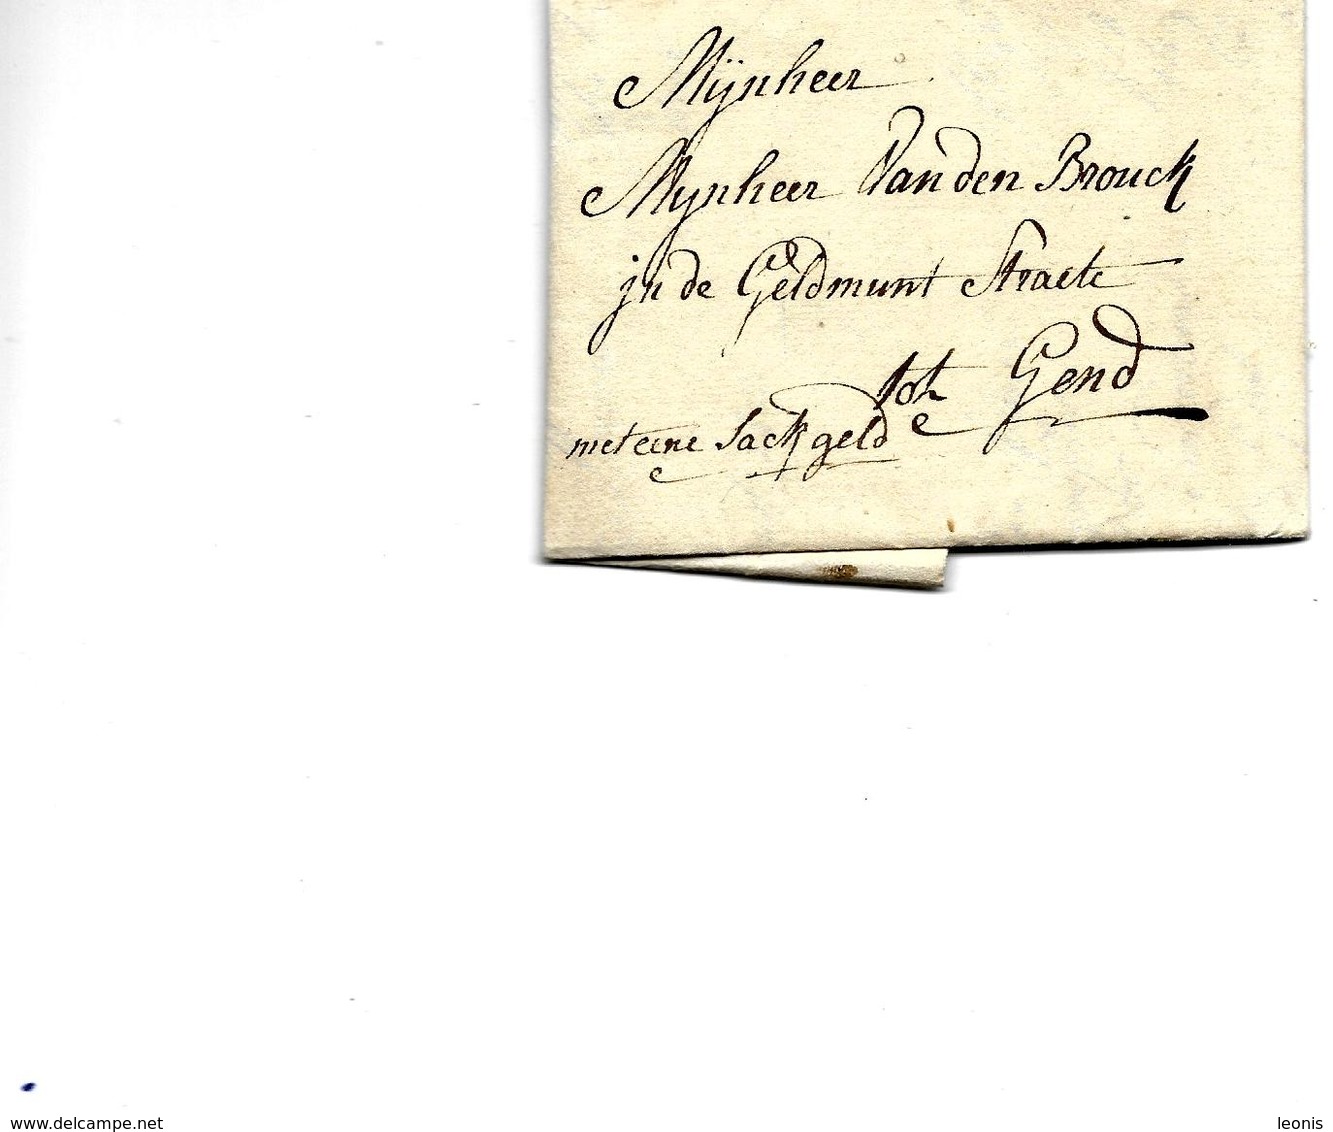 Mijnheer
Mynheer Van den Brouck
jn de Geldmunt Straete
tot Gend
met eene Sack geld
www.delcampe.net
leonis